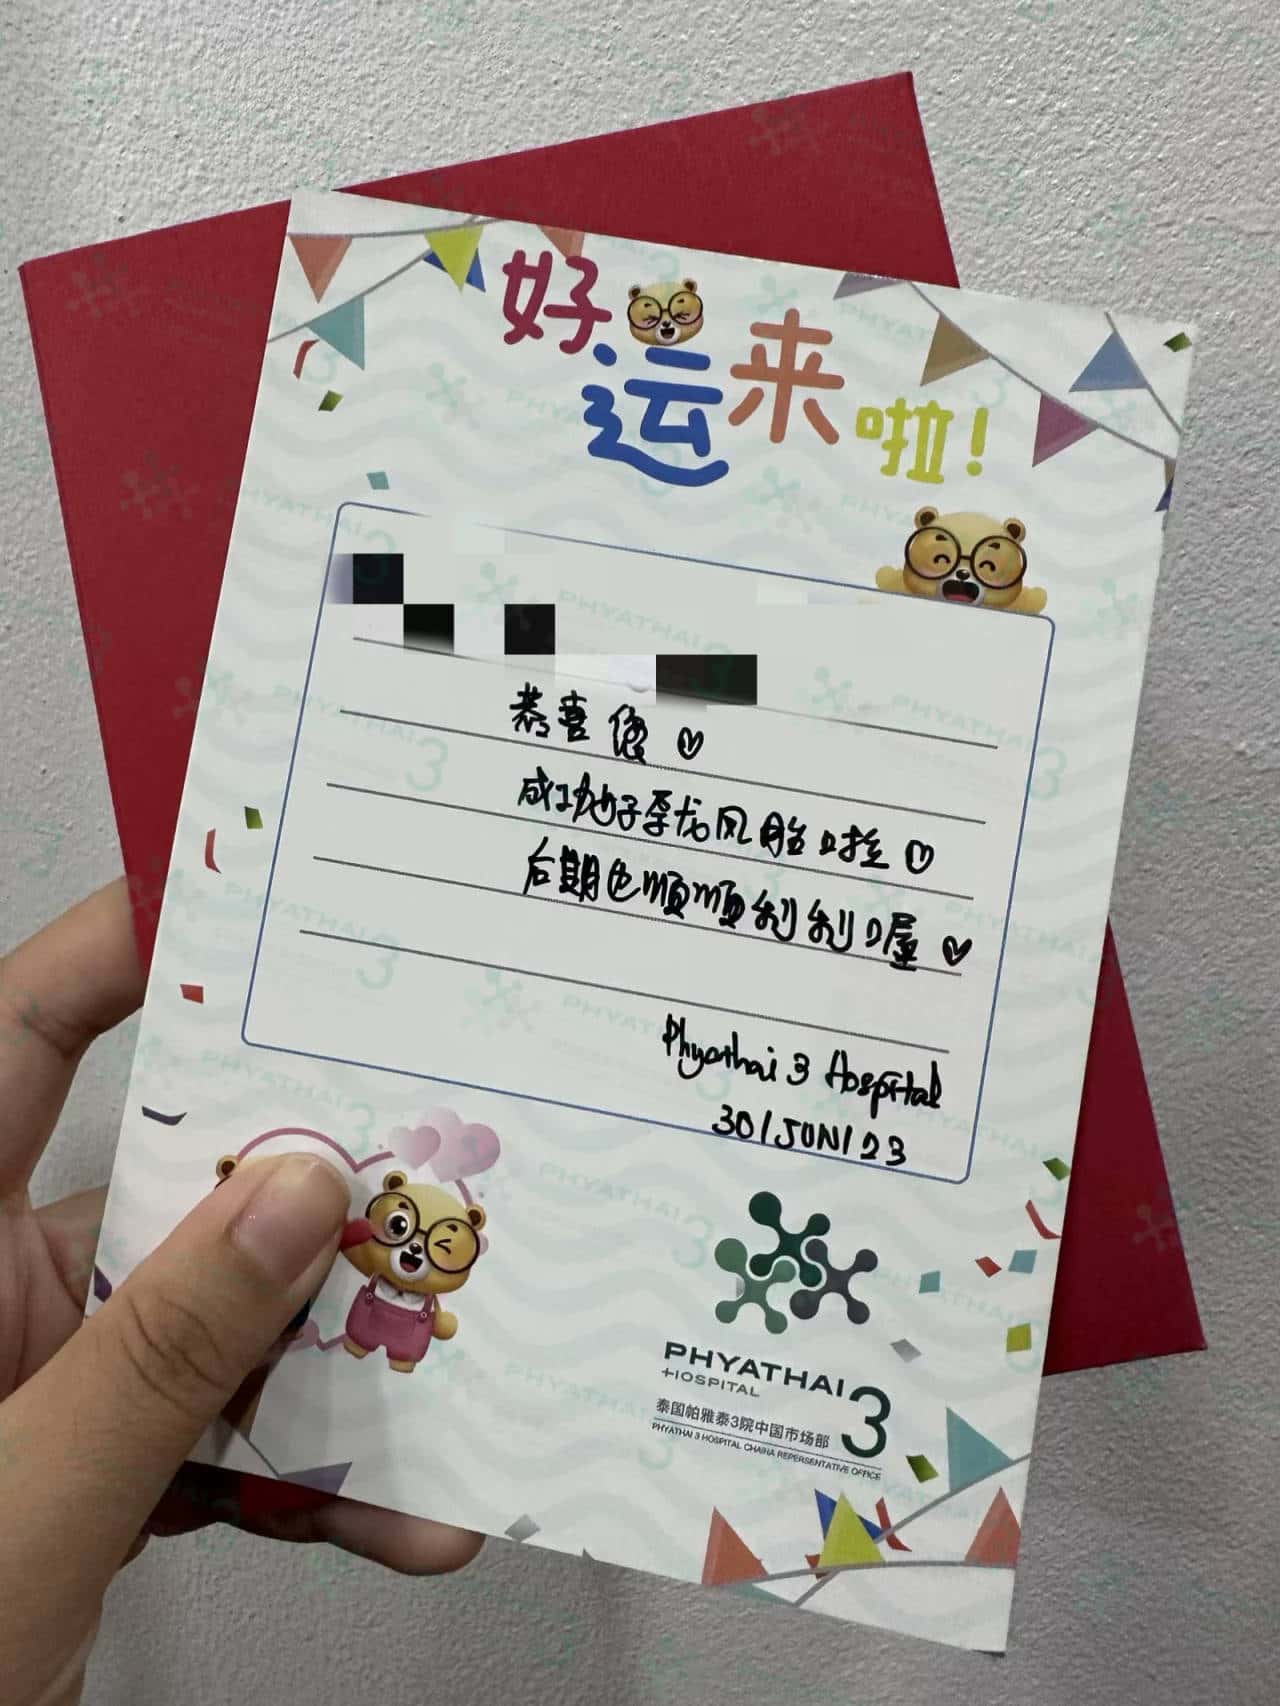 好运来啦!
恭喜您♡
成功好孕龙凤胎啦♡
后期也顺顺利利喔♡
Phyathai 3 Hospital
30/JUN/23
PHYATHAI 3
HOSPITAL
泰国帕雅泰3院中国市场部
PHYATHAI 3 HOSPITAL CHAINA REPERSENTATIVE OFFICE